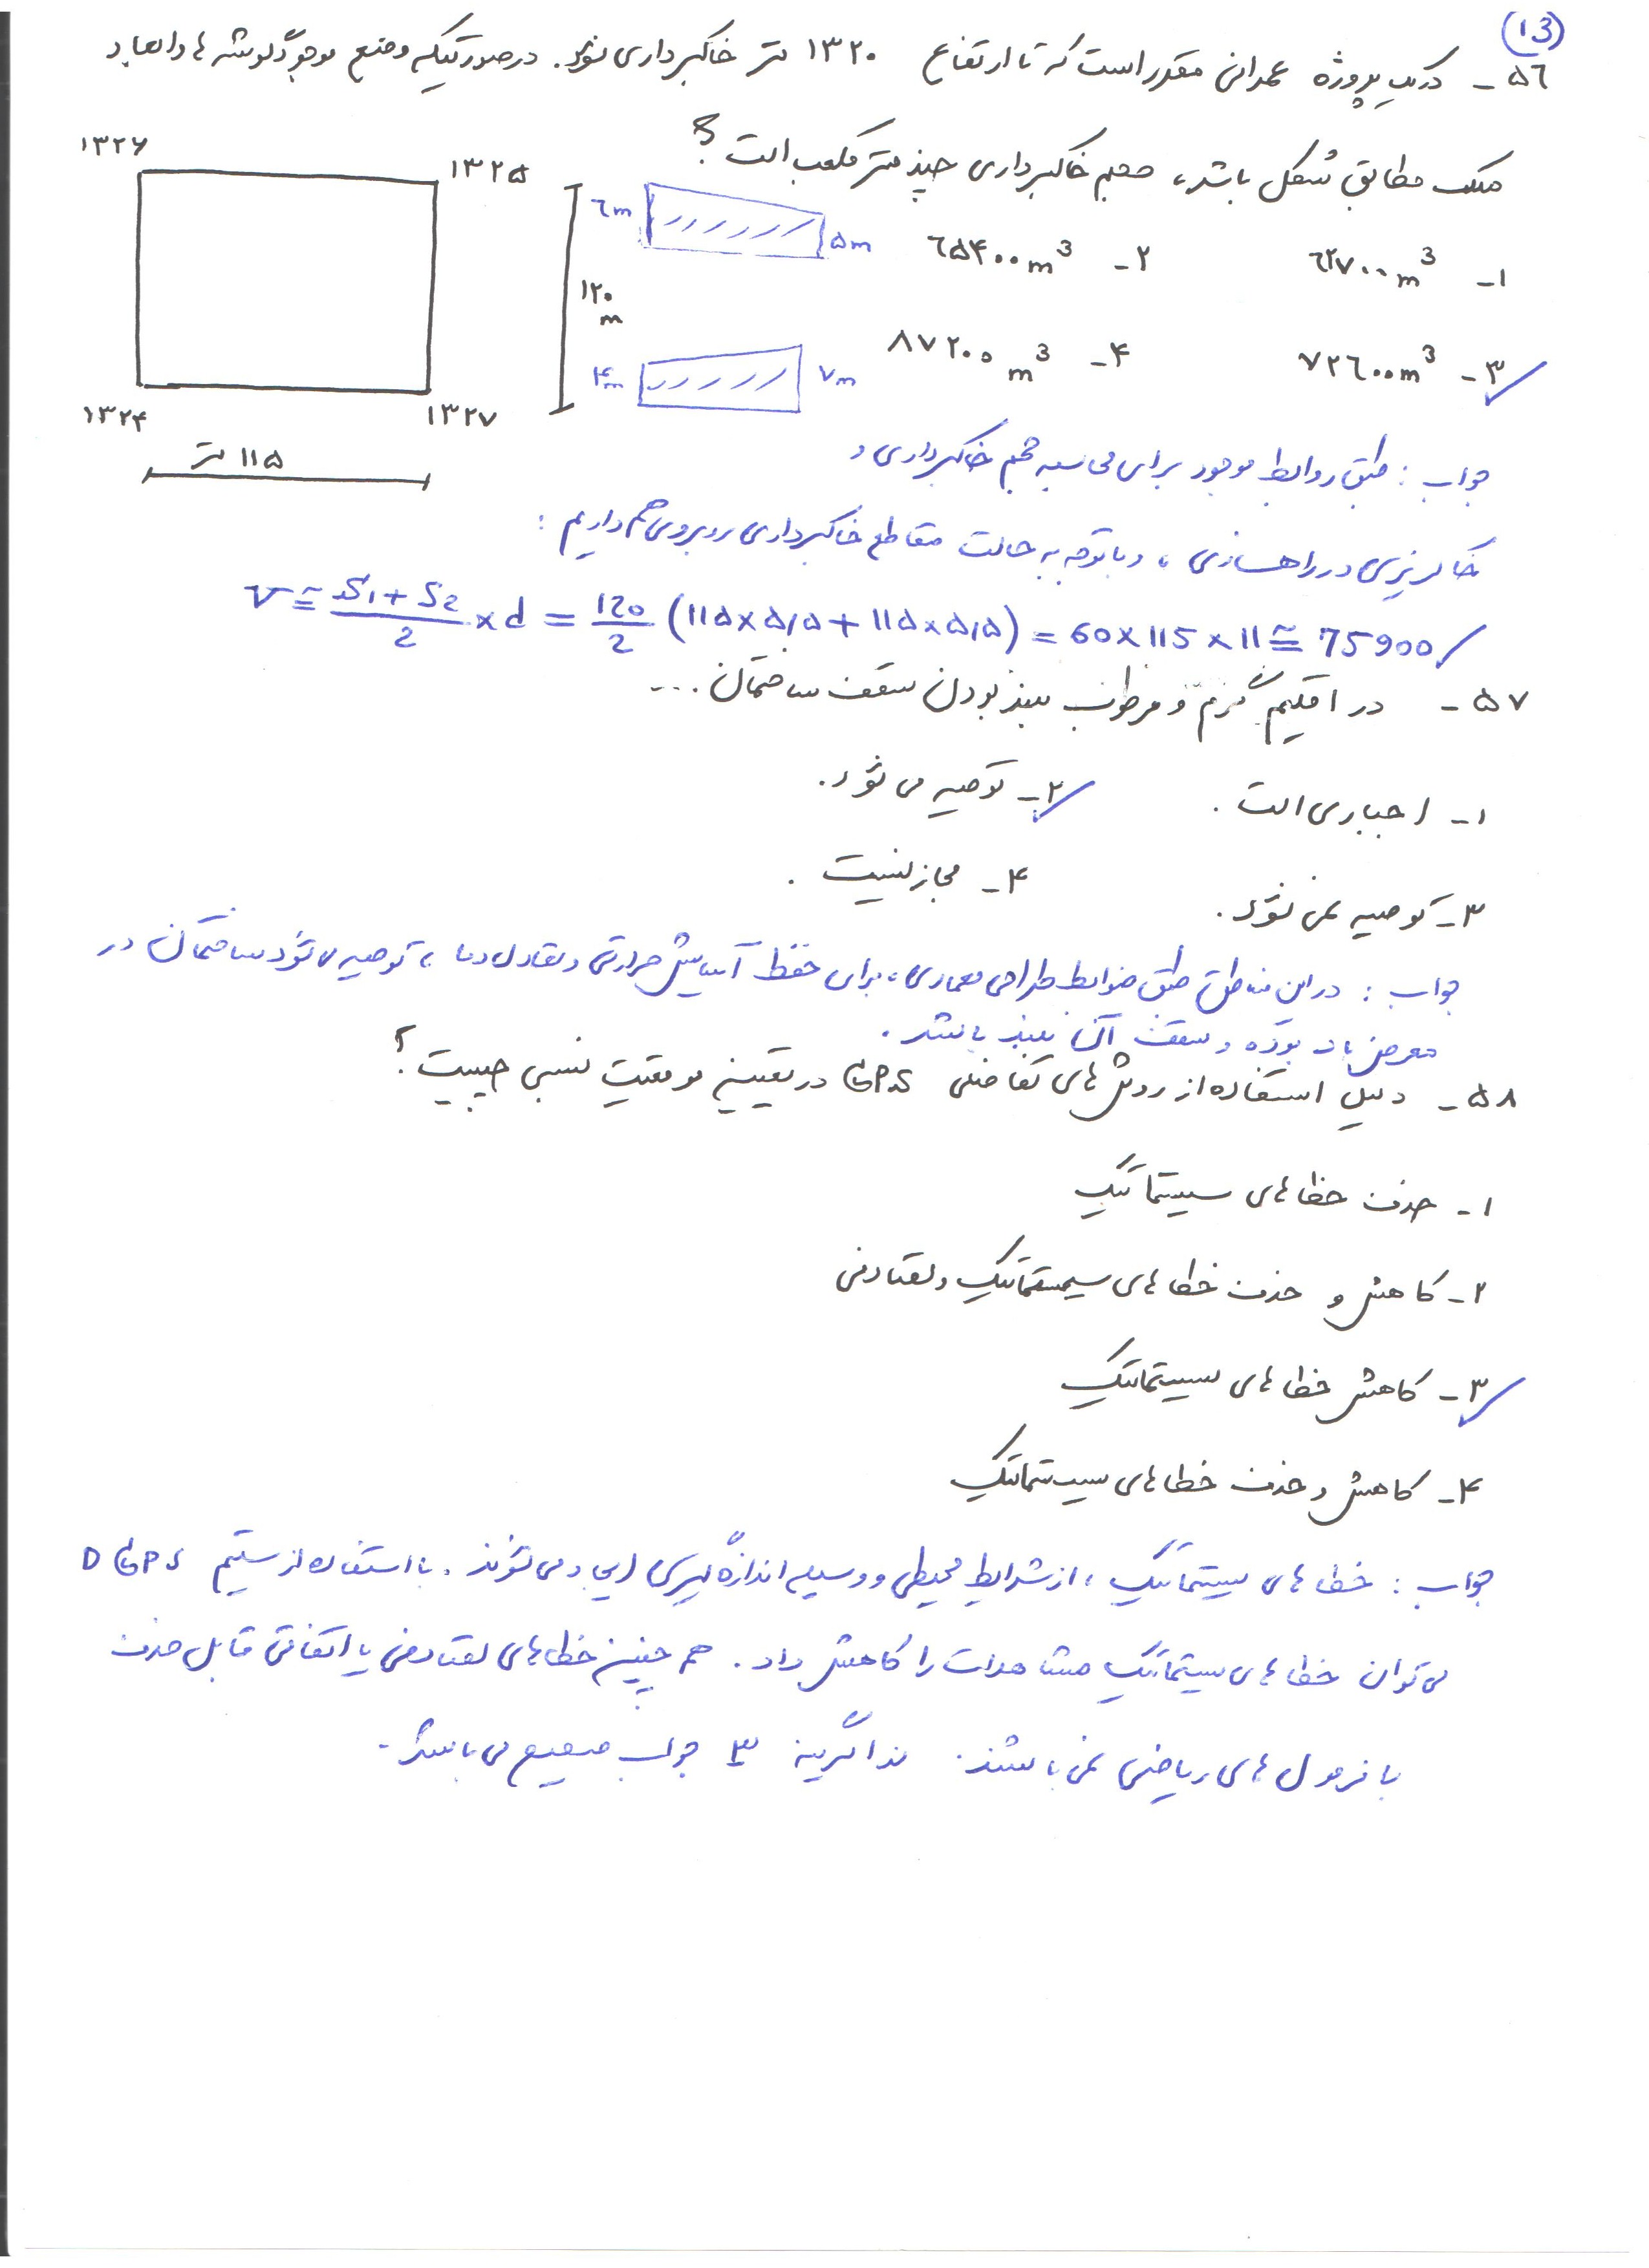 (13)
۵٦ - در یک پروژه عمرانی مقرر است که تا ارتفاع ۱۳۲۰ متر خاکبرداری شود. در صورتیکه وضع موجود گوشه ها و ابعاد
ملک مطابق شکل باشد، حجم خاکبرداری چند متر مکعب است؟
۱۳۲۶
۱۳۲۵
۱۳۲۴
۱۳۲۷
۱۱۵ متر
۱۲۰ m
٦m
۵m
۴m
۷m
۱- ٦۲۷۰۰ m³
۲- ٦۵۴۰۰ m³
۳- ۷۲٦۰۰ m³
۴- ۸۷۲۰۰ m³
جواب : طبق روابط موجود برای محاسبه حجم خاکبرداری و
خاکریزی در راهسازی ، و با توجه به حالت مقاطع خاکبرداری روبروی هم داریم :
V ≅ (S₁ + S₂)/2 × d = 120/2 (۱۱۵×۵/۵ + ۱۱۵×۵/۵) = 60 × 115 × 11 ≅ 75900
۵۷ - در اقلیم گرم و مرطوب سبز بودن سقف ساختمان ...
۱- اجباری است .
۲- توصیه می شود .
۳- توصیه نمی شود .
۴- مجاز نیست .
جواب : در این مناطق طبق ضوابط طراحی معماری ، برای حفظ آسایش حرارتی و تعادل دما ، توصیه می شود ساختمان در
معرض باد بوده و سقف آن سبز باشد .
۵۸ - دلیل استفاده از روش های تفاضلی GPS در تعیین موقعیت نسبی چیست ؟
۱- حذف خطاهای سیستماتیک
۲- کاهش و حذف خطاهای سیستماتیک و تصادفی
۳- کاهش خطاهای سیستماتیک
۴- کاهش و حذف خطاهای سیستماتیک
جواب : خطاهای سیستماتیک ، از شرایط محیطی و وسیله اندازه گیری ایجاد می شوند . با استفاده از سیستم DGPS
می توان خطاهای سیستماتیک مشاهدات را کاهش داد . هم چنین خطاهای تصادفی یا اتفاقی قابل حذف
با فرمول های ریاضی نمی باشند . لذا گزینه ۳ جواب صحیح می باشد .